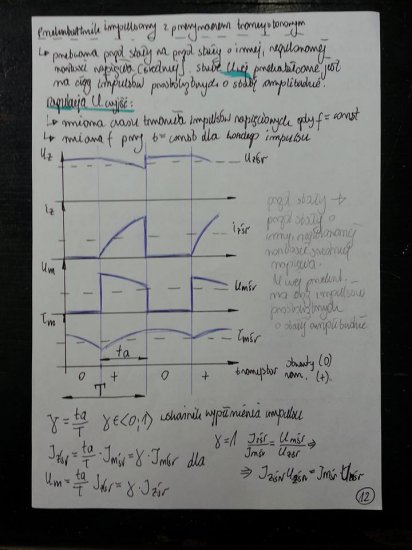 Przekształtnik impulsowy z przerywaczem tranzystorowym
↳ przetwarza prąd stały na prąd stały o innej, regulowanej
wartości napięcia (średniej). stałe Uwej przekształcane jest
na ciąg impulsów prostokątnych o stałej amplitudzie.
regulacja U wyjść:
↳ zmiana czasu trwania impulsów napięciowych gdy f = const
↳ zmiana f przy t = const dla każdego impulsu
Uz
Uzśr
iz
izśr
Um
Umśr
Im
Imśr
ta
0 + 0 +
tranzystor
otwarty (0)
(+)
T
prąd stały →
prąd stały o
innej, regulowanej
wartości średniej
napięcia.
U wej przekszt.
na ciąg impulsów
prostokątnych
o stałej amplitudzie
γ = ta/T γ∈<0;1> wskaźnik wypełnienia impulsu
Izśr = ta/T · Imśr = γ · Imśr dla
γ=1 Izśr/Imśr = Umśr/Uzśr ⇒
Um = ta/T · Izśr = γ · Izśr
⇒ Izśr Uzśr = Imśr Umśr
12